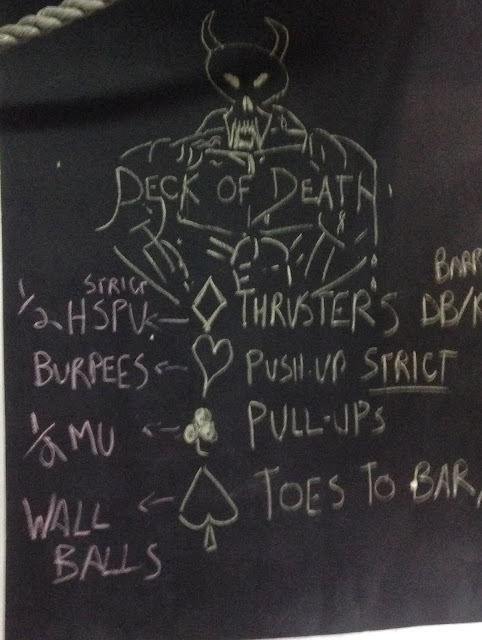 DECK OF DEATH
BARR
STRICT
1/2 HSPU ← ♢ THRUSTERS DB/K
BURPEES ← ♡ PUSH-UP STRICT
1/2 MU ← ♣ PULL-UPS
WALL ← ♤ TOES TO BAR,
BALLS